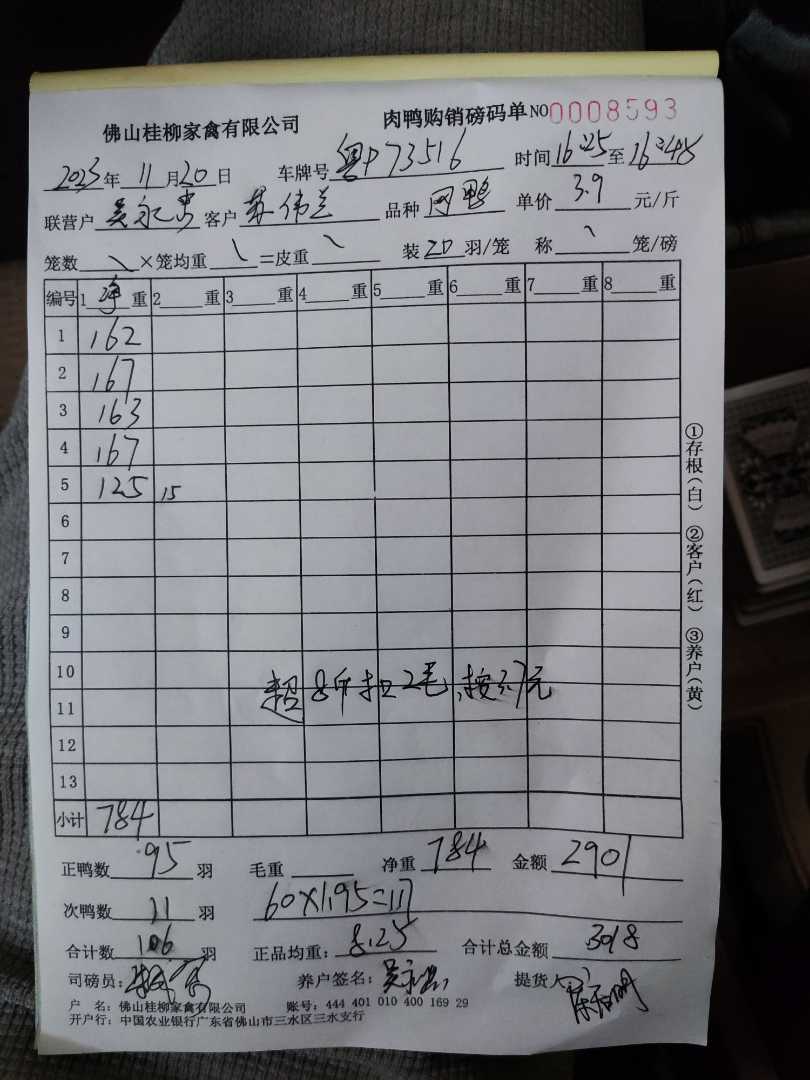 佛山桂柳家禽有限公司 肉鸭购销磅码单 NO0008593
2023年11月20日 车牌号 粤P73516 时间16:25至16:45
联营户 吴永忠 客户 苏伟兰 品种 肉鸭 单价 3.9 元/斤
笼数 \ ×笼均重 \ =皮重 \ 装20羽/笼 称 \ 笼/磅
编号 1 净 重 2 重 3 重 4 重 5 重 6 重 7 重 8 重
1 162
2 167
3 163
4 167
5 125 15
6
7
8
9
10
超8斤扣2毛,按3.7元
11
12
13
小计 784
正鸭数 95 羽 毛重 净重 784 金额 2901
次鸭数 11 羽 60×1.95=117
合计数 106 羽 正品均重: 8.25 合计总金额 3018
司磅员: 养户签名: 吴永忠 提货人:
户 名: 佛山桂柳家禽有限公司 账号: 444 401 010 400 169 29
开户行: 中国农业银行广东省佛山市三水区三水支行
①存根(白) ②客户(红) ③养户(黄)